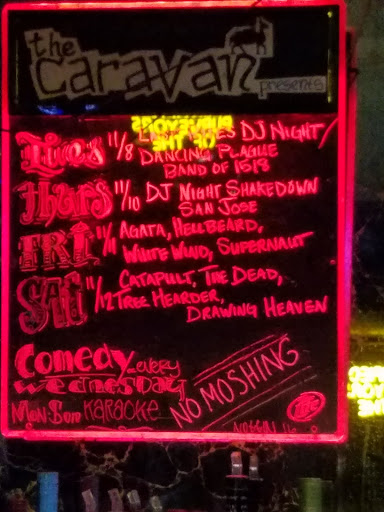 the
caravan
presents
Tues 11/8 DJ NIGHT
DANCING PLAGUE
BAND OF 1518
Thurs 11/10 DJ NIGHT SHAKEDOWN
SAN JOSE
FRI 11/11 AGATA, HELLBEARD,
WHITE WIND, SUPERNAUT
SAT 11/12 CATAPULT, THE DEAD,
TREE HEARDER,
DRAWING HEAVEN
Comedy every
wednesday
MON-SUN KARAOKE
NO MOSHING